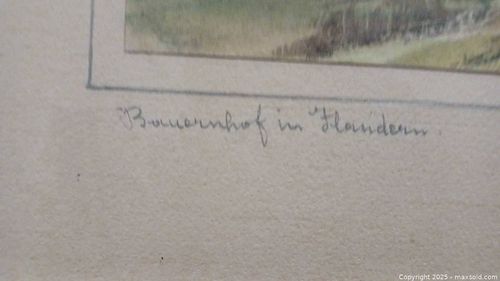 Bauernhof in Flandern.
Copyright 2025 - maxsold.com